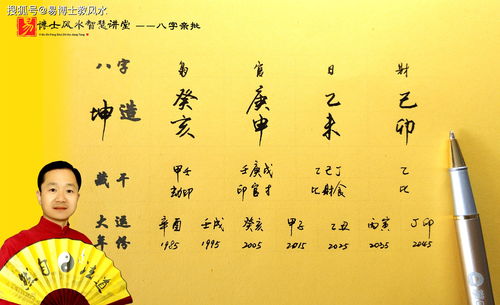 搜狐号@易博士教风水
易 博士风水智慧讲堂 ——八字亲批
Yi Bo Shi Feng Shui Zhi Hui Jiang Tang
八字 枭 官 日 财
坤造 癸 庚 乙 己
亥 申 未 卯
藏干 甲壬 壬庚戊 乙己丁 乙
劫印 印官才 比财食 比
大运 辛酉 壬戌 癸亥 甲子 乙丑 丙寅 丁卯
年份 1985 1995 2005 2015 2025 2035 2045
然自法道